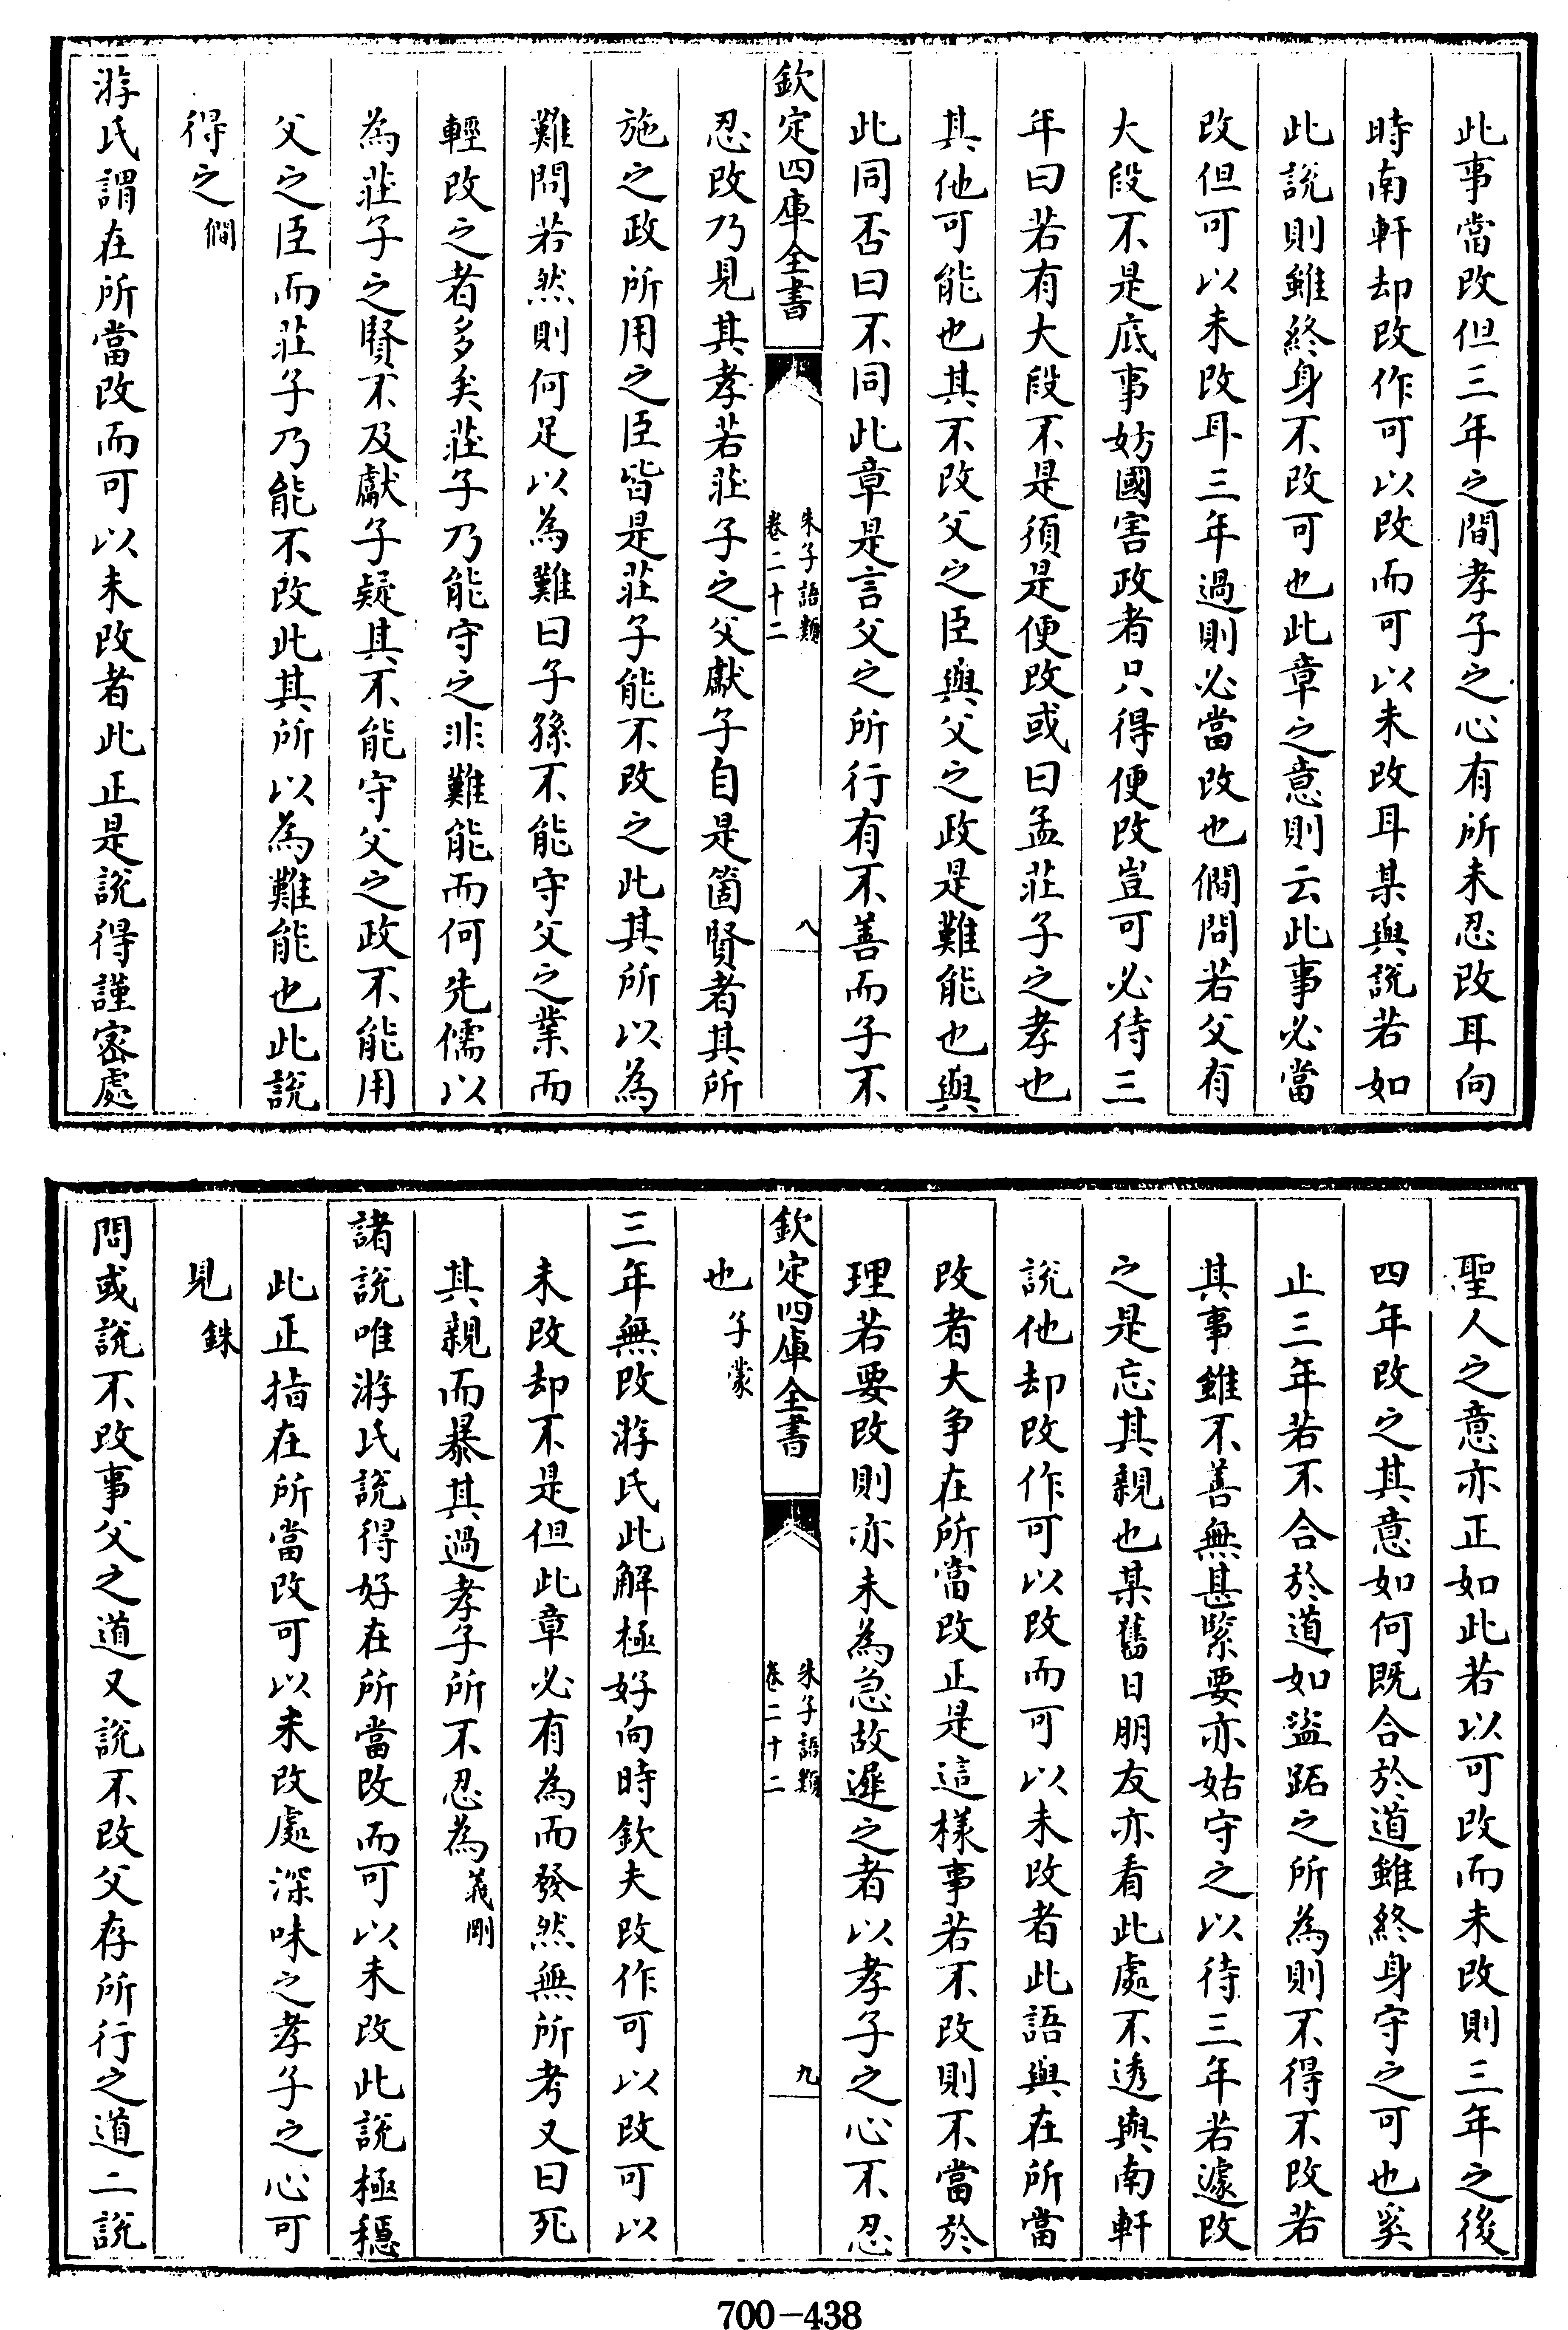 此事當改但三年之間孝子之心有所未忍改耳向
時南軒却改作可以改而可以未改耳某與說若如
此說則雖終身不改可也此章之意則云此事必當
改但可以未改耳三年過則必當改也僩問若父有
大段不是底事妨國害政者只得便改豈可必待三
年曰若有大段不是須是便改或曰孟莊子之孝也
其他可能也其不改父之臣與父之政是難能也與
此同否曰不同此章是言父之所行有不善而子不
欽定四庫全書
朱子語類
卷二十二
八
忍改乃見其孝若莊子之父獻子自是箇賢者其所
施之政所用之臣皆是莊子能不改之此其所以為
難問若然則何足以為難曰子孫不能守父之業而
輕改之者多矣莊子乃能守之非難能而何先儒以
為莊子之賢不及獻子疑其不能守父之政不能用
父之臣而莊子乃能不改此其所以為難能也此說
得之僩
游氏謂在所當改而可以未改者此正是說得謹密處
聖人之意亦正如此若以可改而未改則三年之後
四年改之其意如何既合於道雖終身守之可也奚
止三年若不合於道如盜跖之所為則不得不改若
其事雖不善無甚緊要亦姑守之以待三年若遽改
之是忘其親也某舊日朋友亦看此處不透與南軒
說他却改作可以改而可以未改者此語與在所當
改者大爭在所當改正是這樣事若不改則不當於
理若要改則亦未為急故遲之者以孝子之心不忍
欽定四庫全書
朱子語類
卷二十二
九
也子蒙
三年無改游氏此解極好向時欽夫改作可以改可以
未改却不是但此章必有為而發然無所考又曰死
其親而暴其過孝子所不忍為義剛
諸說唯游氏說得好在所當改而可以未改此說極穩
此正指在所當改可以未改處深味之孝子之心可
見銖
問或說不改事父之道又說不改父存所行之道二說
700-438